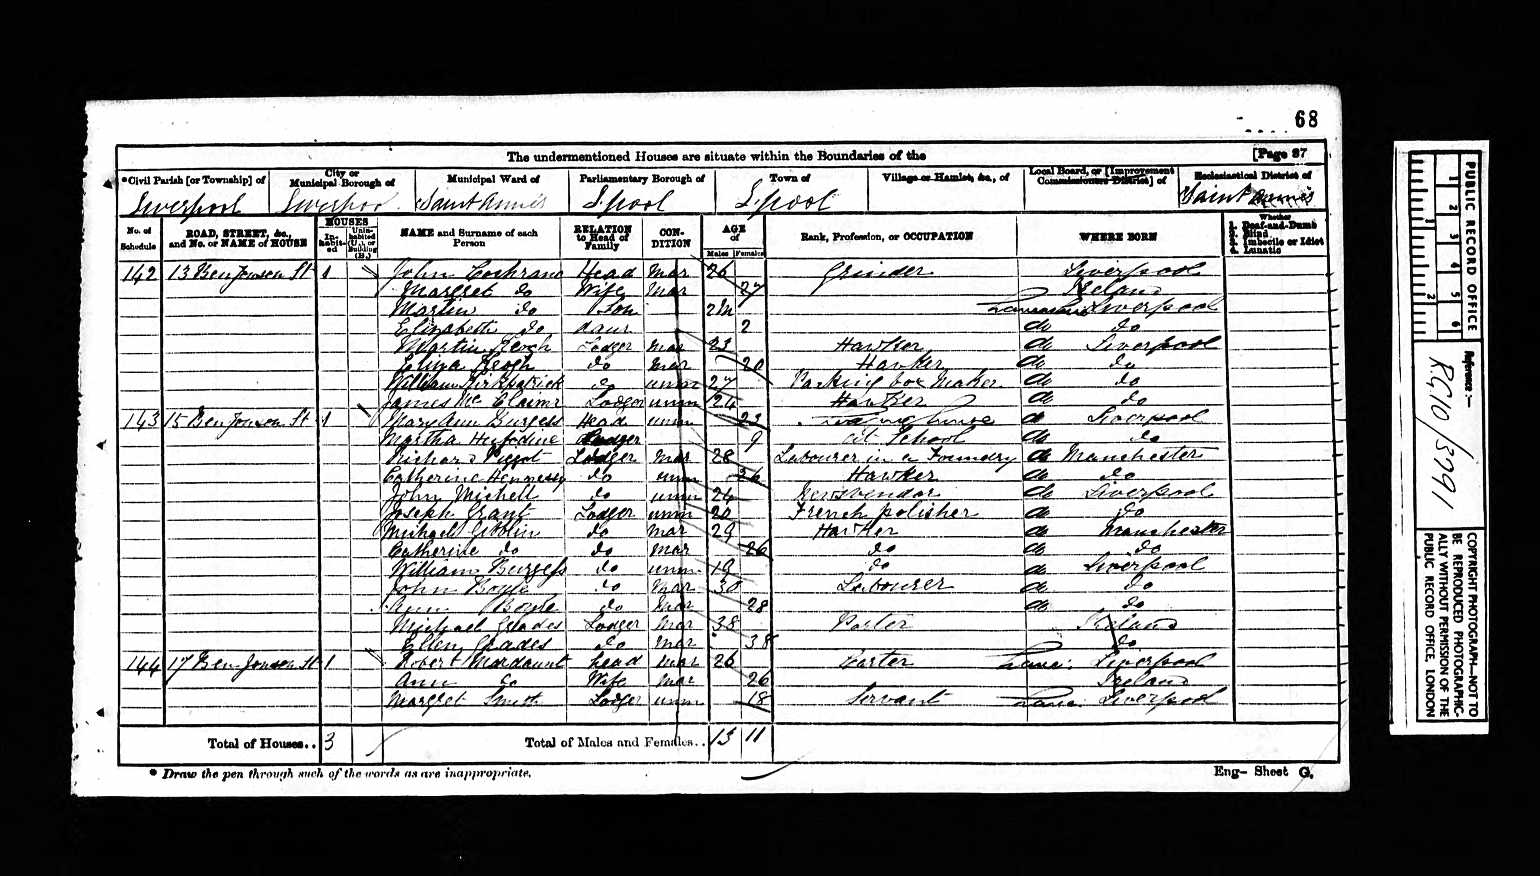 68
The undermentioned Houses are situate within the Boundaries of the [Page 37
*Civil Parish [or Township] of City or Municipal Borough of Municipal Ward of Parliamentary Borough of Town of Village or Hamlet, &c., of Local Board, or [Improvement Commissioners District] of Ecclesiastical District of
Liverpool Liverpool Saint Anne's L'pool L'pool Saint Anne's
No. of Schedule ROAD, STREET, &c., and No. or NAME of HOUSE HOUSES Inhabited Uninhabited (U.), or Building (B.) NAME and Surname of each Person RELATION to Head of Family CONDITION AGE of Males Females Rank, Profession, or OCCUPATION WHERE BORN Whether 1. Deaf-and-Dumb 2. Blind 3. Imbecile or Idiot 4. Lunatic
142 13 Ben Jonson St 1 John Cochrane Head Mar 26 Grinder Liverpool
Margret do Wife Mar 27 Ireland
Martin do Son 2m Lancashire Liverpool
Elizabeth do daur 2 do do
Martin Keogh Lodger Mar 23 Hawker do Liverpool
Eliza Keogh do Mar 20 Hawker do do
William Kirkpatrick do unm 27 Packing box Maker do do
James Mc Lodger unm 24 Hawker do do
143 15 Ben Jonson St 1 Mary Ann Burgess Head unm 23 do Liverpool
Martha Lodger 9 at School do do
Richard Lodger Mar 28 Labourer in a Foundry do Manchester
Catherine Hennessy do unm 36 Hawker do do
John Michell do unm 24 Newsvendor do Liverpool
Joseph Grant Lodger unm 20 French polisher do do
Michael Giblin do Mar 29 Hawker do Manchester
Catherine do do Mar 26 do do do
William Burgess do unm 19 do do Liverpool
John Boyle do Mar 30 Labourer do do
Ann Boyle do Mar 28 do do
Michael Glades Lodger Mar 38 Porter Ireland
Ellen Glades do Mar 38 do
144 17 Ben Jonson St 1 Robert Mordaunt head Mar 26 Porter Lanc: Liverpool
Ann do Wife Mar 26 Ireland
Margret Smith Lodger unm 18 Servant Lanc: Liverpool
Total of Houses.. 3 Total of Males and Females.. 13 11
* Draw the pen through such of the words as are inappropriate.
Eng- Sheet G.
PUBLIC RECORD OFFICE
1 2 3 4 5 6
1 2
Reference:-
RG10/3791
COPYRIGHT PHOTOGRAPH-NOT TO BE REPRODUCED PHOTOGRAPHICALLY WITHOUT PERMISSION OF THE PUBLIC RECORD OFFICE, LONDON